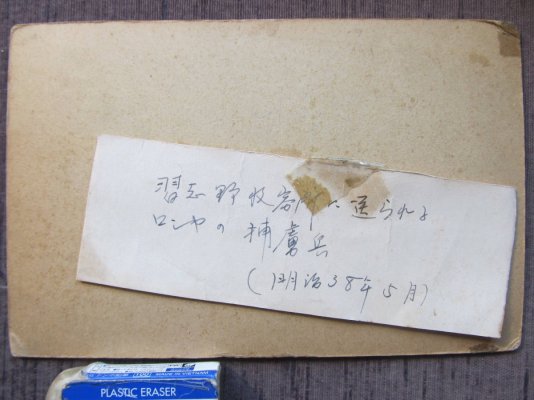 習志野収容所に送られる
ロシヤの捕虜兵
(明治38年5月)
MADE IN VIETNAM
PLASTIC ERASER